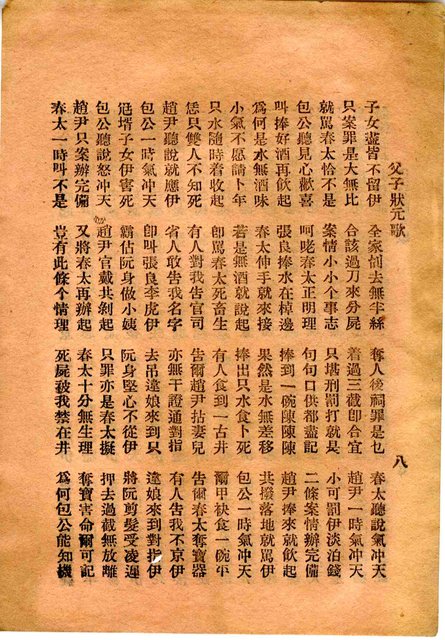 父子狀元歌　八
子女盡皆不留伊　全家刣去無半絲　奪人後祠罪是乜　春太聽說氣冲天
只案罪是大無比　合該過刀來分屍　着過三截即合宜　趙尹一時氣冲天
就罵春太恰不是　案情小小个事志　只堪刑罰打就是　小可罰伊淡泊錢
包公聽見心歡喜　呵咾春太正明理　句句口供都盡記　二條案情辦完備
叫捧好酒再飲起　張良捧水在棹邊　捧到一碗陳陳陳　趙尹捧來就飲起
為何是水無酒味　春太伸手就來接　果然是水無差移　共撥落地就罵伊
小氣不愿請卜年　若是無酒就說起　捧出只水食卜死　包公一時氣冲天
只水隨時着收起　即罵春太死畜生　有人食到一古井　爾甲袂食一碗平
恁只雙人不知死　有人對我告官司　告爾趙尹拈妻兒　告爾春太奪寶器
趙尹聽說就應伊　省人敢告我名字　亦無干證通對指　有人告我不京伊
包公一時氣冲天　即叫張良李虎伊　去吊違娘來到只　違娘來到對指伊
尫壻子女伊害死　霸佔阮身做小姨　阮身堅心不從伊　將阮剪髮受凌遲
包公聽說怒冲天　趙尹官戴共剝起　只罪亦是春太擬　押去過截無放離
趙尹只案辦完備　又將春太再辦起　春太十分無生理　奪寶害命爾可記
春太一時叫不是　豈有此條个情理　死屍被我禁在井　為何包公能知機